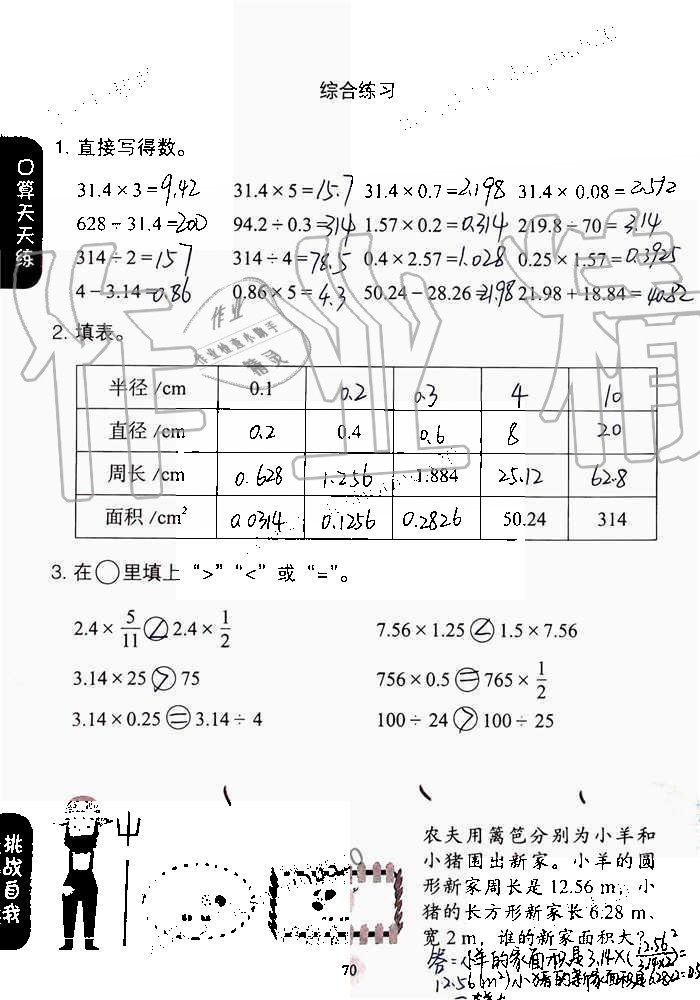 综合练习
口算天天练
1. 直接写得数。
31.4×3=9.42 31.4×5=15.7 31.4×0.7=2.198 31.4×0.08=2.512
628÷31.4=200 94.2÷0.3=314 1.57×0.2=0.314 219.8÷70=3.14
314÷2=157 314÷4=78.5 0.4×2.57=1.028 0.25×1.57=0.3925
4-3.14=0.86 0.86×5=4.3 50.24-28.26=21.98 21.98+18.84=40.82
2. 填表。
作业
作业检查小助手
精灵
半径/cm 0.1 0.2 0.3 4 10
直径/cm 0.2 0.4 0.6 8 20
周长/cm 0.628 1.256 1.884 25.12 62.8
面积/cm² 0.0314 0.1256 0.2826 50.24 314
3. 在○里填上“>”“<”或“=”。
2.4×5/11<2.4×1/2 7.56×1.25<1.5×7.56
3.14×25>75 756×0.5=765×1/2
3.14×0.25=3.14÷4 100÷24>100÷25
挑战自我
农夫用篱笆分别为小羊和
小猪围出新家。小羊的圆
形新家周长是 12.56 m，小
猪的长方形新家长 6.28 m、
宽 2 m，谁的新家面积大?
答=小羊的家面积是3.14×(12.56/3.14×2)²=
12.56(m²)小猪的新家面积是6.28×2=
70